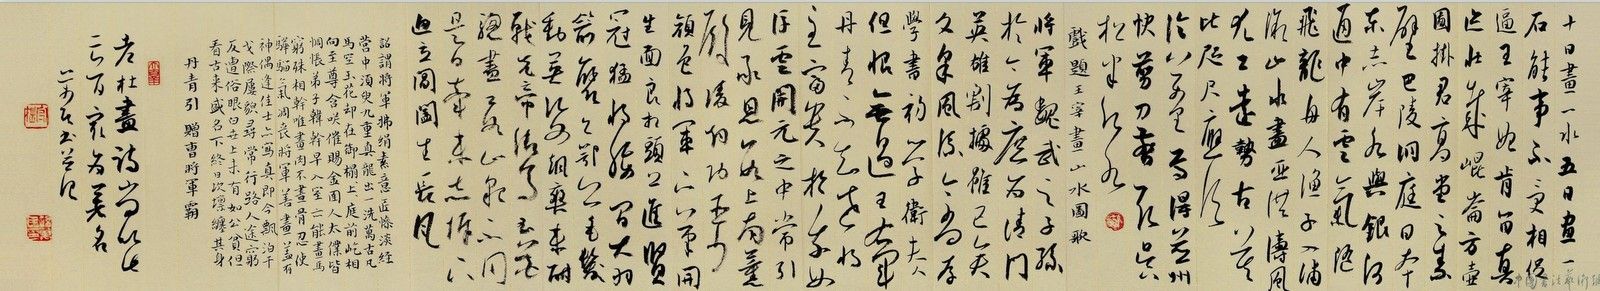 十日畫一水五日畫一
石能事不受相促
逼王宰始肯留真
迹壯哉崑崙方壺
圖掛君高堂之素
壁巴陵洞庭日本
東赤岸水與銀河
通中有雲氣隨
飛龍舟人漁子入浦
溆山木盡亞洪濤風
尤工遠勢古莫
比咫尺應須
論萬里焉得并州
快剪刀剪取吳
松半江水
戲題王宰畫山水圖歌
將軍魏武之子孫
於今為庶為清門
英雄割據雖已矣
文采風流今尚存
學書初學衛夫人
但恨無過王右軍
丹青不知老將
至富貴於我如
浮雲開元之中常引
見承恩數上南薰
殿凌煙功臣少
顏色將軍下筆開
生面良相頭上進賢
冠猛將腰間大羽
箭褒公鄂公毛髮
動英姿颯爽來酣
戰先帝御馬玉花
驄畫工如山貌不同
是日牽來赤墀下
迥立閶闔生長風
詔謂將軍拂絹素意匠慘淡經
營中須臾九重真龍出一洗萬古凡
馬空玉花却在御榻上庭前屹相
向至尊含笑催賜金圉人太僕皆
惆悵弟子韓幹早入室亦能畫馬
窮殊相幹唯畫肉不畫骨忍使
驊騮氣凋喪將軍善畫蓋有
神偶逢佳士亦寫真即今飄泊干
戈際屢貌尋常行路人途窮
反遭俗眼白世上未有如公貧但
看古來盛名下終日坎壈纏其身
丹青引贈曹將軍霸
老杜畫詩當以此
二首最為著名